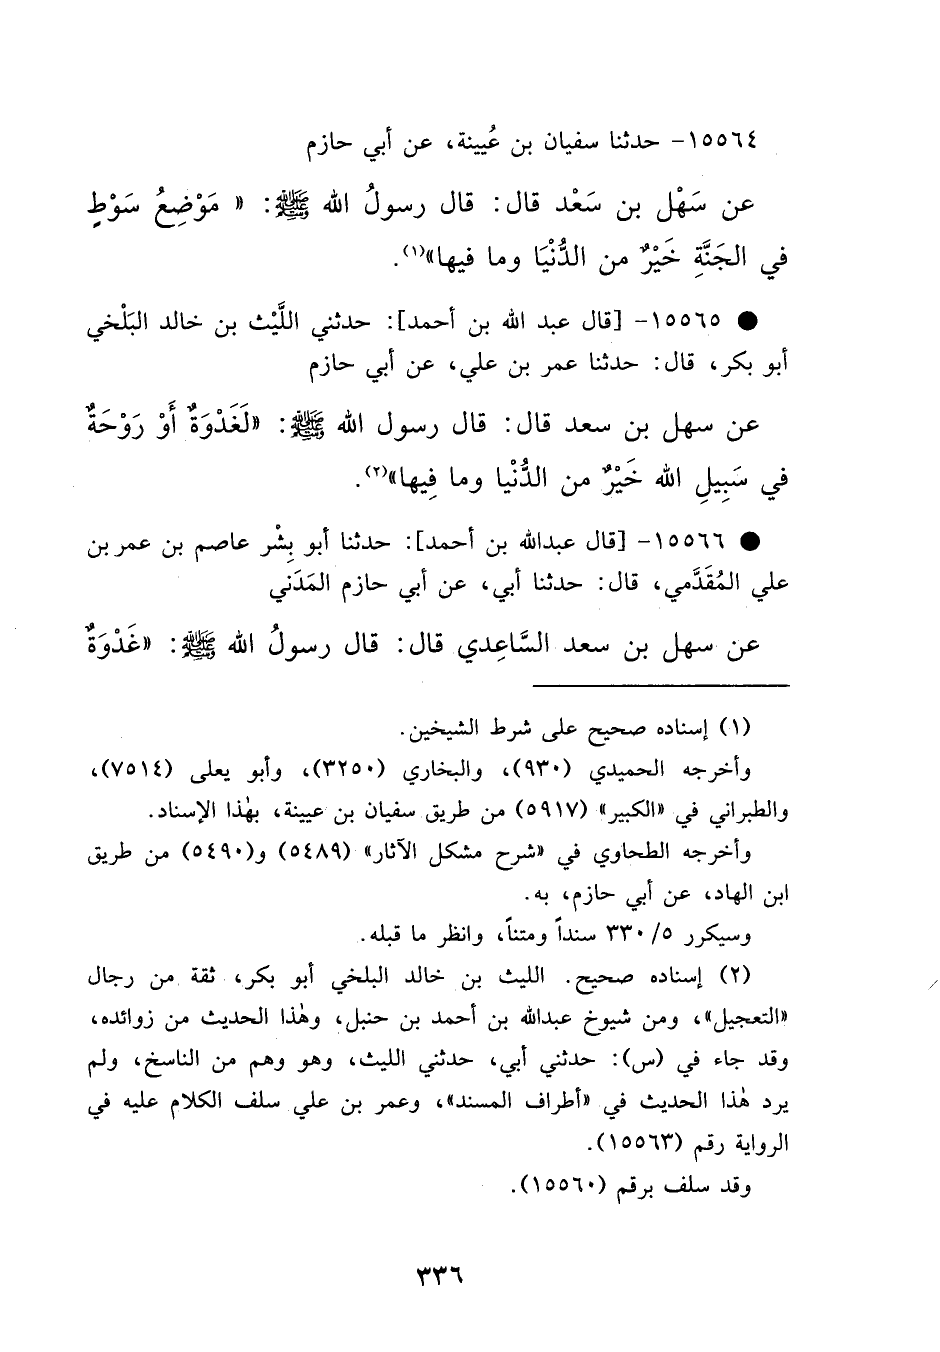 ١٥٥٦٤- حدثنا سفيان بن عُيينة، عن أبي حازم
عن سَهْل بن سَعْد قال: قال رسولُ الله ﷺ: « مَوْضِعُ سَوْطٍ
في الجَنَّةِ خَيْرٌ من الدُّنْيَا وما فيها»(١).
● ١٥٥٦٥- [قال عبد الله بن أحمد]: حدثني اللَّيْث بن خالد البَلْخي
أبو بكر، قال: حدثنا عمر بن علي، عن أبي حازم
عن سهل بن سعد قال: قال رسول الله ﷺ: «لَغَدْوَةٌ أَوْ رَوْحَةٌ
في سَبِيلِ الله خَيْرٌ من الدُّنْيا وما فِيها»(٢).
● ١٥٥٦٦- [قال عبدالله بن أحمد]: حدثنا أبو بِشْر عاصم بن عمر بن
علي المُقَدَّمي، قال: حدثنا أبي، عن أبي حازم المَدَني
عن سهل بن سعد السَّاعِدي قال: قال رسولُ الله ﷺ: «غَدْوَةٌ
(١) إسناده صحيح على شرط الشيخين.
وأخرجه الحميدي (٩٣٠)، والبخاري (٣٢٥٠)، وأبو يعلى (٧٥١٤)،
والطبراني في «الكبير» (٥٩١٧) من طريق سفيان بن عيينة، بهٰذا الإسناد.
وأخرجه الطحاوي في «شرح مشكل الآثار» (٥٤٨٩) و(٥٤٩٠) من طريق
ابن الهاد، عن أبي حازم، به.
وسيكرر ٥/ ٣٣٠ سنداً ومتناً، وانظر ما قبله.
(٢) إسناده صحيح. الليث بن خالد البلخي أبو بكر، ثقة من رجال
«التعجيل»، ومن شيوخ عبدالله بن أحمد بن حنبل، وهٰذا الحديث من زوائده،
وقد جاء في (س): حدثني أبي، حدثني الليث، وهو وهم من الناسخ، ولم
يرد هٰذا الحديث في «أطراف المسند»، وعمر بن علي سلف الكلام عليه في
الرواية رقم (١٥٥٦٣).
وقد سلف برقم (١٥٥٦٠).
٣٣٦